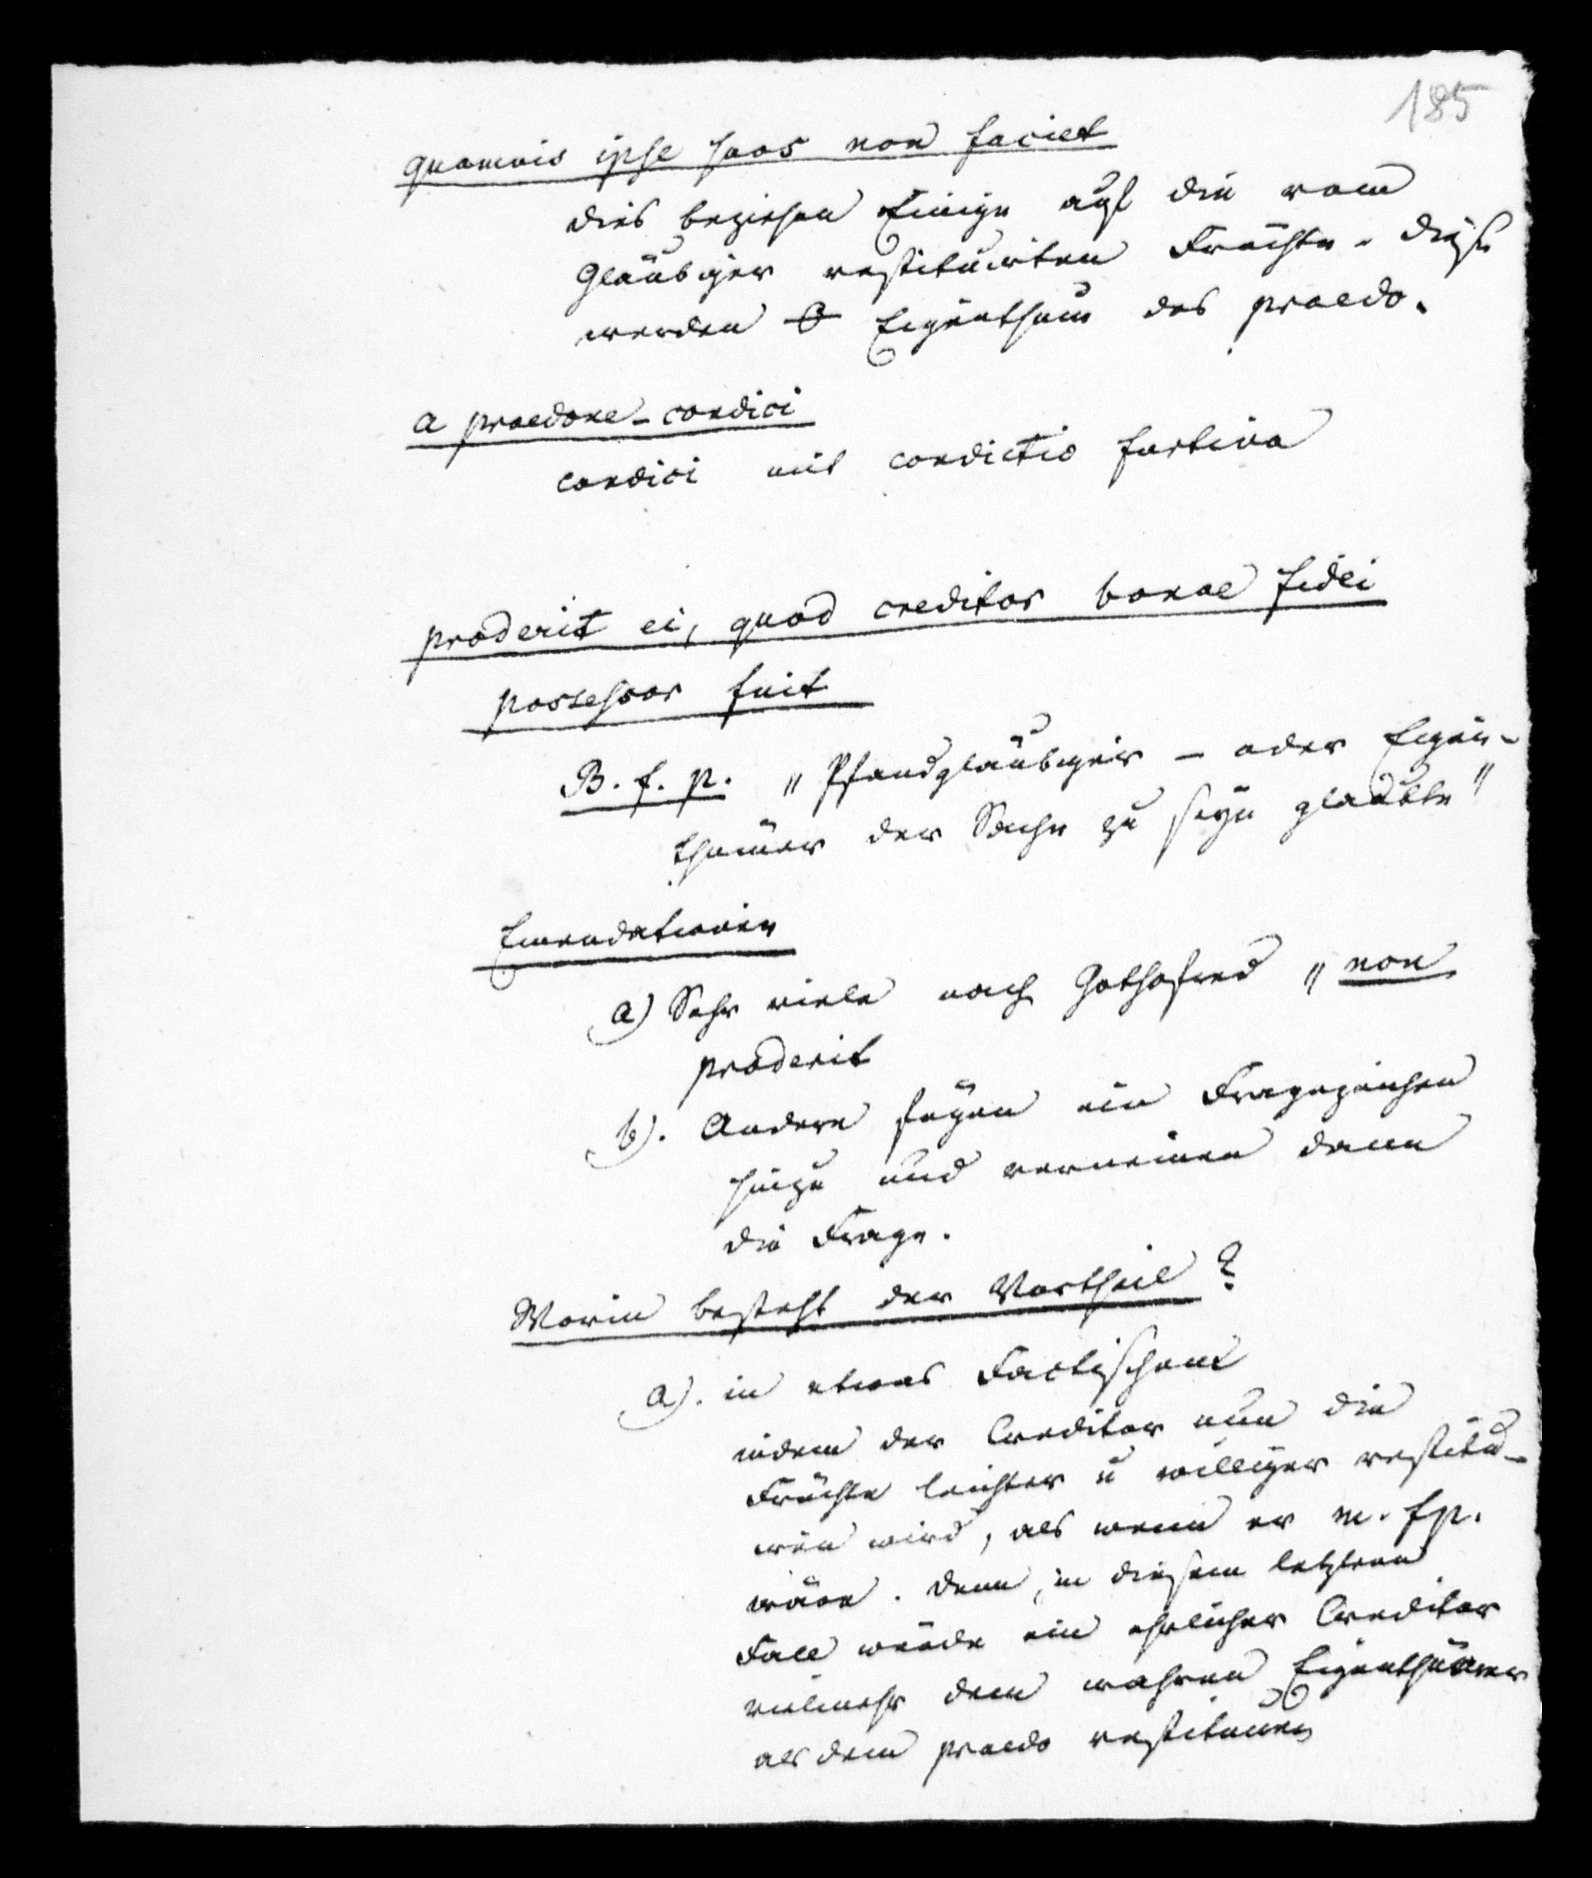 185
quamvis ipse suos non faciet
dies beziehen Einige auf die vom
Gläubiger restituirten Früchte. Diese
werden Eigenthum des praedo.
a praedone - condici
condici mit condictio furtiva
proderit ei, quod creditor bonae fidei
possessor fuit
B. f. p. „Pfandgläubiger – oder Eigen-
thümer der Sache zu seyn glaubte"
Emendationen
a) Sehr viele nach Gothofred „non
proderit
b). Andere fügen ein Fragezeichen
hinzu und verneinen dann
die Frage.
Worin besteht der Vortheil?
a). in etwas Factischem
indem der Creditor nun die
Früchte leichter u williger restitu-
iren wird, als wenn er m. f. p.
wäre. Denn in diesem letztern
Fall würde ein ehrlicher Creditor
vielmehr dem wahren Eigenthümer
als dem praedo restituiren